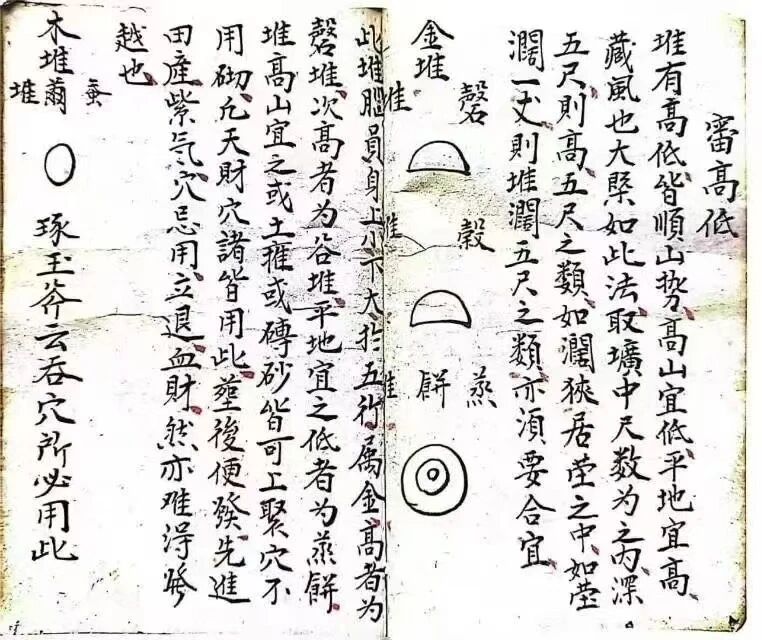 審高低
堆有高低皆順山势高山宜低平地宜高
藏風也大槩如此法取壙中尺数为之内深
五尺則高五尺之類如濶狹居塋之中如塋
濶一丈則堆濶五尺之類亦須要合宜
金堆
磬堆
穀堆
蒸餅堆
此堆腦員身上小下大於五行属金高者为
磬堆次高者为谷堆平地宜之低者为蒸餅
堆高山宜之或土擁或磚砂皆可上聚穴不
用砌允天財穴諸皆用此塟後便發先進
田産紫气穴忌用立退血財然亦难淂發
越也
木堆
蚕繭堆
琢玉斧云吞穴所必用此